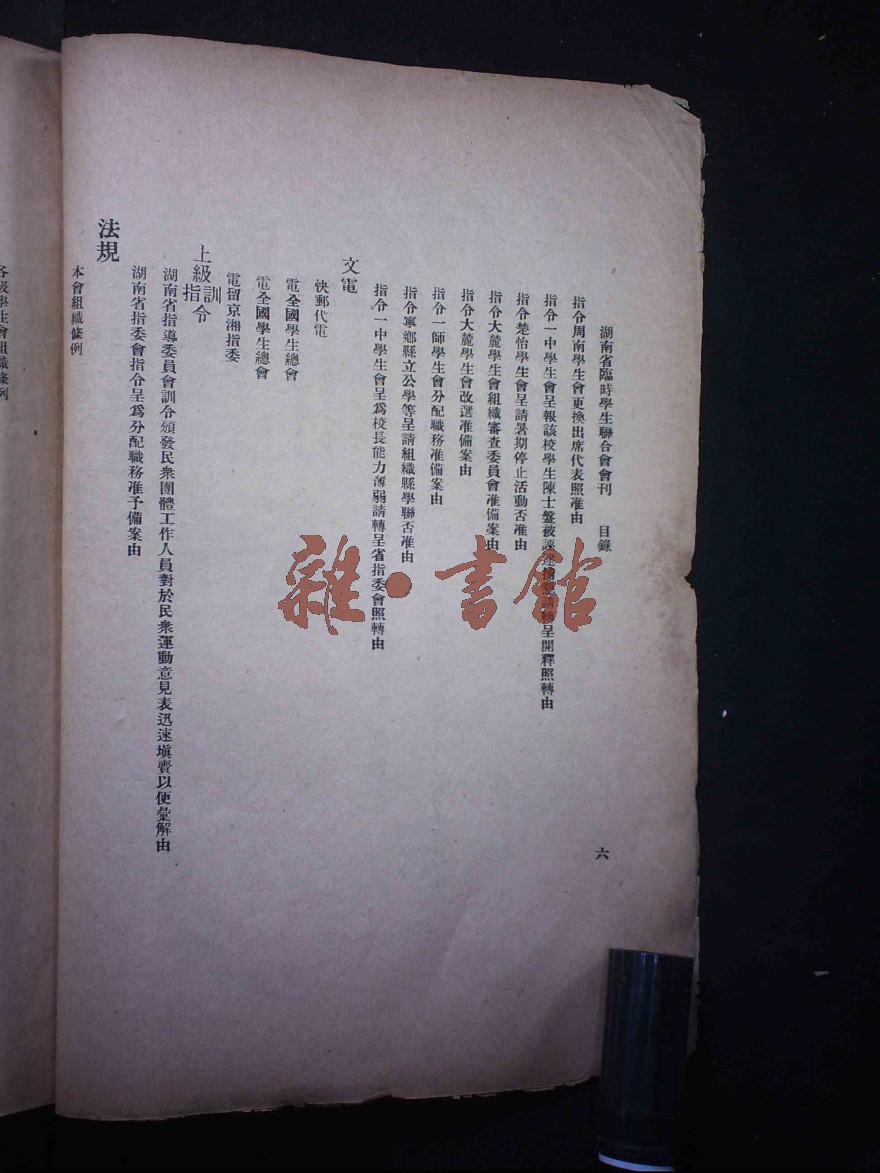 湖南省臨時學生聯合會會刊　目錄　六
指令周南學生會更換出席代表照准由
指令一中學生會呈報該校學生陳士盤被誣逮捕請轉呈開釋照轉由
指令楚怡學生會呈請暑期停止活動否准由
指令大麓學生會組織審查委員會准備案由
指令大麓學生會改選准備案由
指令一師學生會分配職務准備案由
指令寧鄉縣立公學等呈請組織縣學聯否准由
指令一中學生會呈爲校長能力薄弱請轉呈省指委會照轉由
文電
快郵代電
電全國學生總會
電全國學生總會
電留京湘指委
上級訓指令
湖南省指導委員會訓令頒發民衆團體工作人員對於民衆運動意見表迅速塡賫以便彙解由
湖南省指委會指令呈爲分配職務准予備案由
法規
本會組織條例
各級學生會組織條例
雜·書館